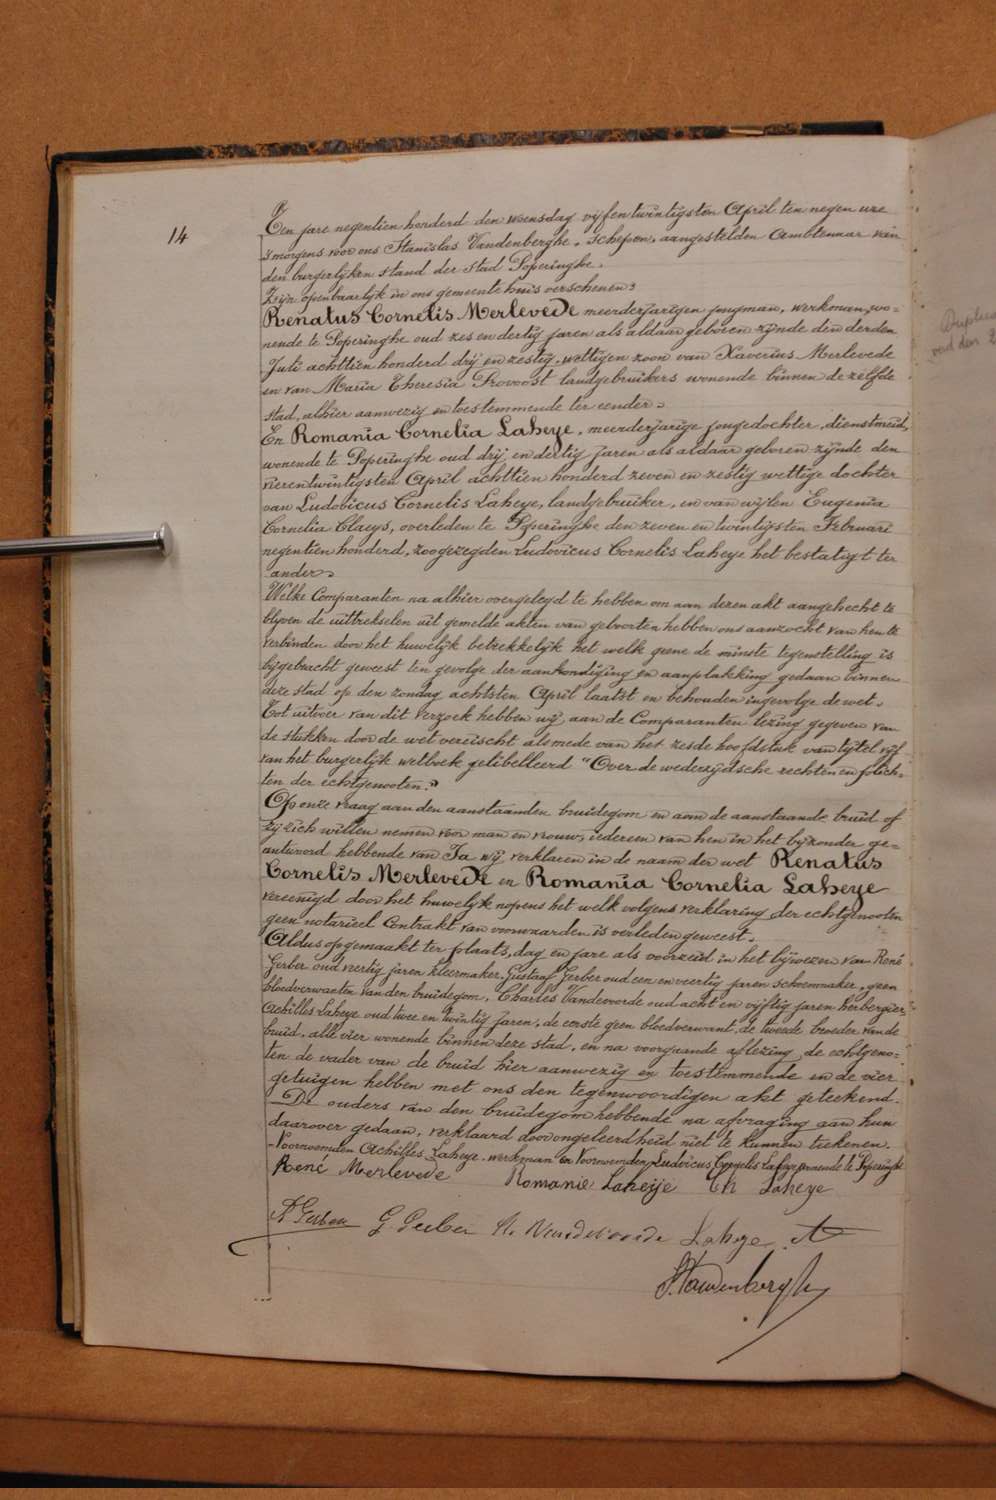 14
Ten jare negentien honderd den woensdag vijfentwintigsten April ten negen ure
's morgens voor ons Stanislas Vandenberghe, schepen, aangestelden Ambtenaar van
den burgerlijken stand der stad Poperinghe.
Zijn openbaarlijk in ons gemeentehuis verschenen:
Renatus Cornelis Merlevede meerderjarigen jongman, werkman, wo=
nende te Poperinghe oud zes en dertig jaren als aldaar geboren zijnde den derden
Juli achttien honderd drij en zestig, wettigen zoon van Xaverius Merlevede
en van Maria Theresia Provoost landgebruikers wonende binnen dezelfde
stad, alhier aanwezig en toestemmende ter eender.
En Romania Cornelia Laheye, meerderjarige jongedochter, dienstmeid,
wonende te Poperinghe oud drij en dertig jaren als aldaar geboren zijnde den
vierentwintigsten April achttien honderd zeven en zestig wettige dochter
van Ludovicus Cornelis Laheye, landgebruiker, en van wijlen Eugenia
Cornelia Claeys, overleden te Poperinghe den zeven en twintigsten Februari
negentien honderd, zoo gezegden Ludovicus Cornelis Laheye het bestatigt ter
ander.
Welke Comparanten na alhier overgelegd te hebben om aan dezen akt aangehecht te
blijven de uittrekselen uit gemelde akten van geboorten hebben ons aanzocht van hen te
verbinden door het huwelijk betrekkelijk het welk geene de minste tegenstelling is
bijgebracht geweest ten gevolge der aankondiging en aanplakking gedaan binnen
deze stad op den zondag achtsten April laatst en behouden ingevolge de wet.
Tot uitvoer van dit verzoek hebben wij aan de Comparanten lezing gegeven van
de stukken door de wet vereischt alsmede van het zesde hoofdstuk van tijtel vijf
van het burgerlijk wetboek gelibelleerd "Over de wederzijdsche rechten en plich=
ten der echtgenooten."
Op onze vraag aan den aanstaanden bruidegom en aan de aanstaande bruid of
zij zich willen nemen voor man en vrouw, iedereen van hen in het bijzonder ge=
antwoord hebbende van Ja wij verklaren in de naam der wet Renatus
Cornelis Merlevede en Romania Cornelia Laheye
vereenigd door het huwelijk nopens het welk volgens verklaring der echtgenooten
geen notarieel Contrakt van voorwaarden is verleden geweest.
Aldus opgemaakt ter plaats, dag en jare als voorzeid in het bijwezen van René
Gerber oud veertig jaren kleermaker, Gustaaf Gerber oud een en veertig jaren schoenmaker, geen
bloedverwanten van den bruidegom, Charles Vandevoorde oud acht en vijftig jaren herbergier,
Achilles Laheye oud twee en twintig jaren, de eerste geen bloedverwant, de tweede broeder van de
bruid, alle vier wonende binnen deze stad, en na voorgaande aflezing de echtgeno=
ten de vader van de bruid hier aanwezig en toestemmende en de vier
getuigen hebben met ons den tegenwoordigen akt geteekend.
De ouders van den bruidegom hebbende na afvraging aan hun
daarover gedaan, verklaard door ongeleerdheid niet te kunnen tiekenen.
Voornoemden Achilles Laheye werkman en Voornoemden Ludovicus Cornelis Laheye wonende te Poperinghe
René Merlevede Romanie Laheije Laheye
R Gerber G Gerber Ch. Vandevoorde Laheye A
S. Vandenberghe